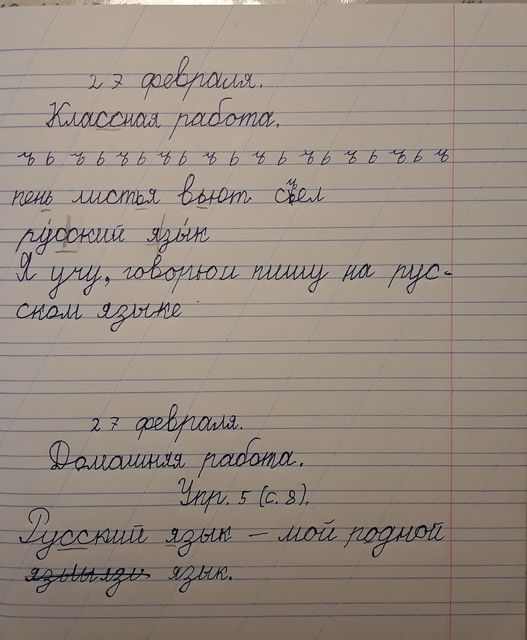 27 февраля.
Классная работа.
ъ ь ъ ь ъ ь ъ ь ъ ь ъ ь ъ ь ъ ь ъ ь ъ
пень листья вьют съел
русский язык
Я учу, говорю и пишу на рус-
ском языке
27 февраля.
Домашняя работа.
Упр. 5 (с. 8).
Русский язык – мой родной
язык.